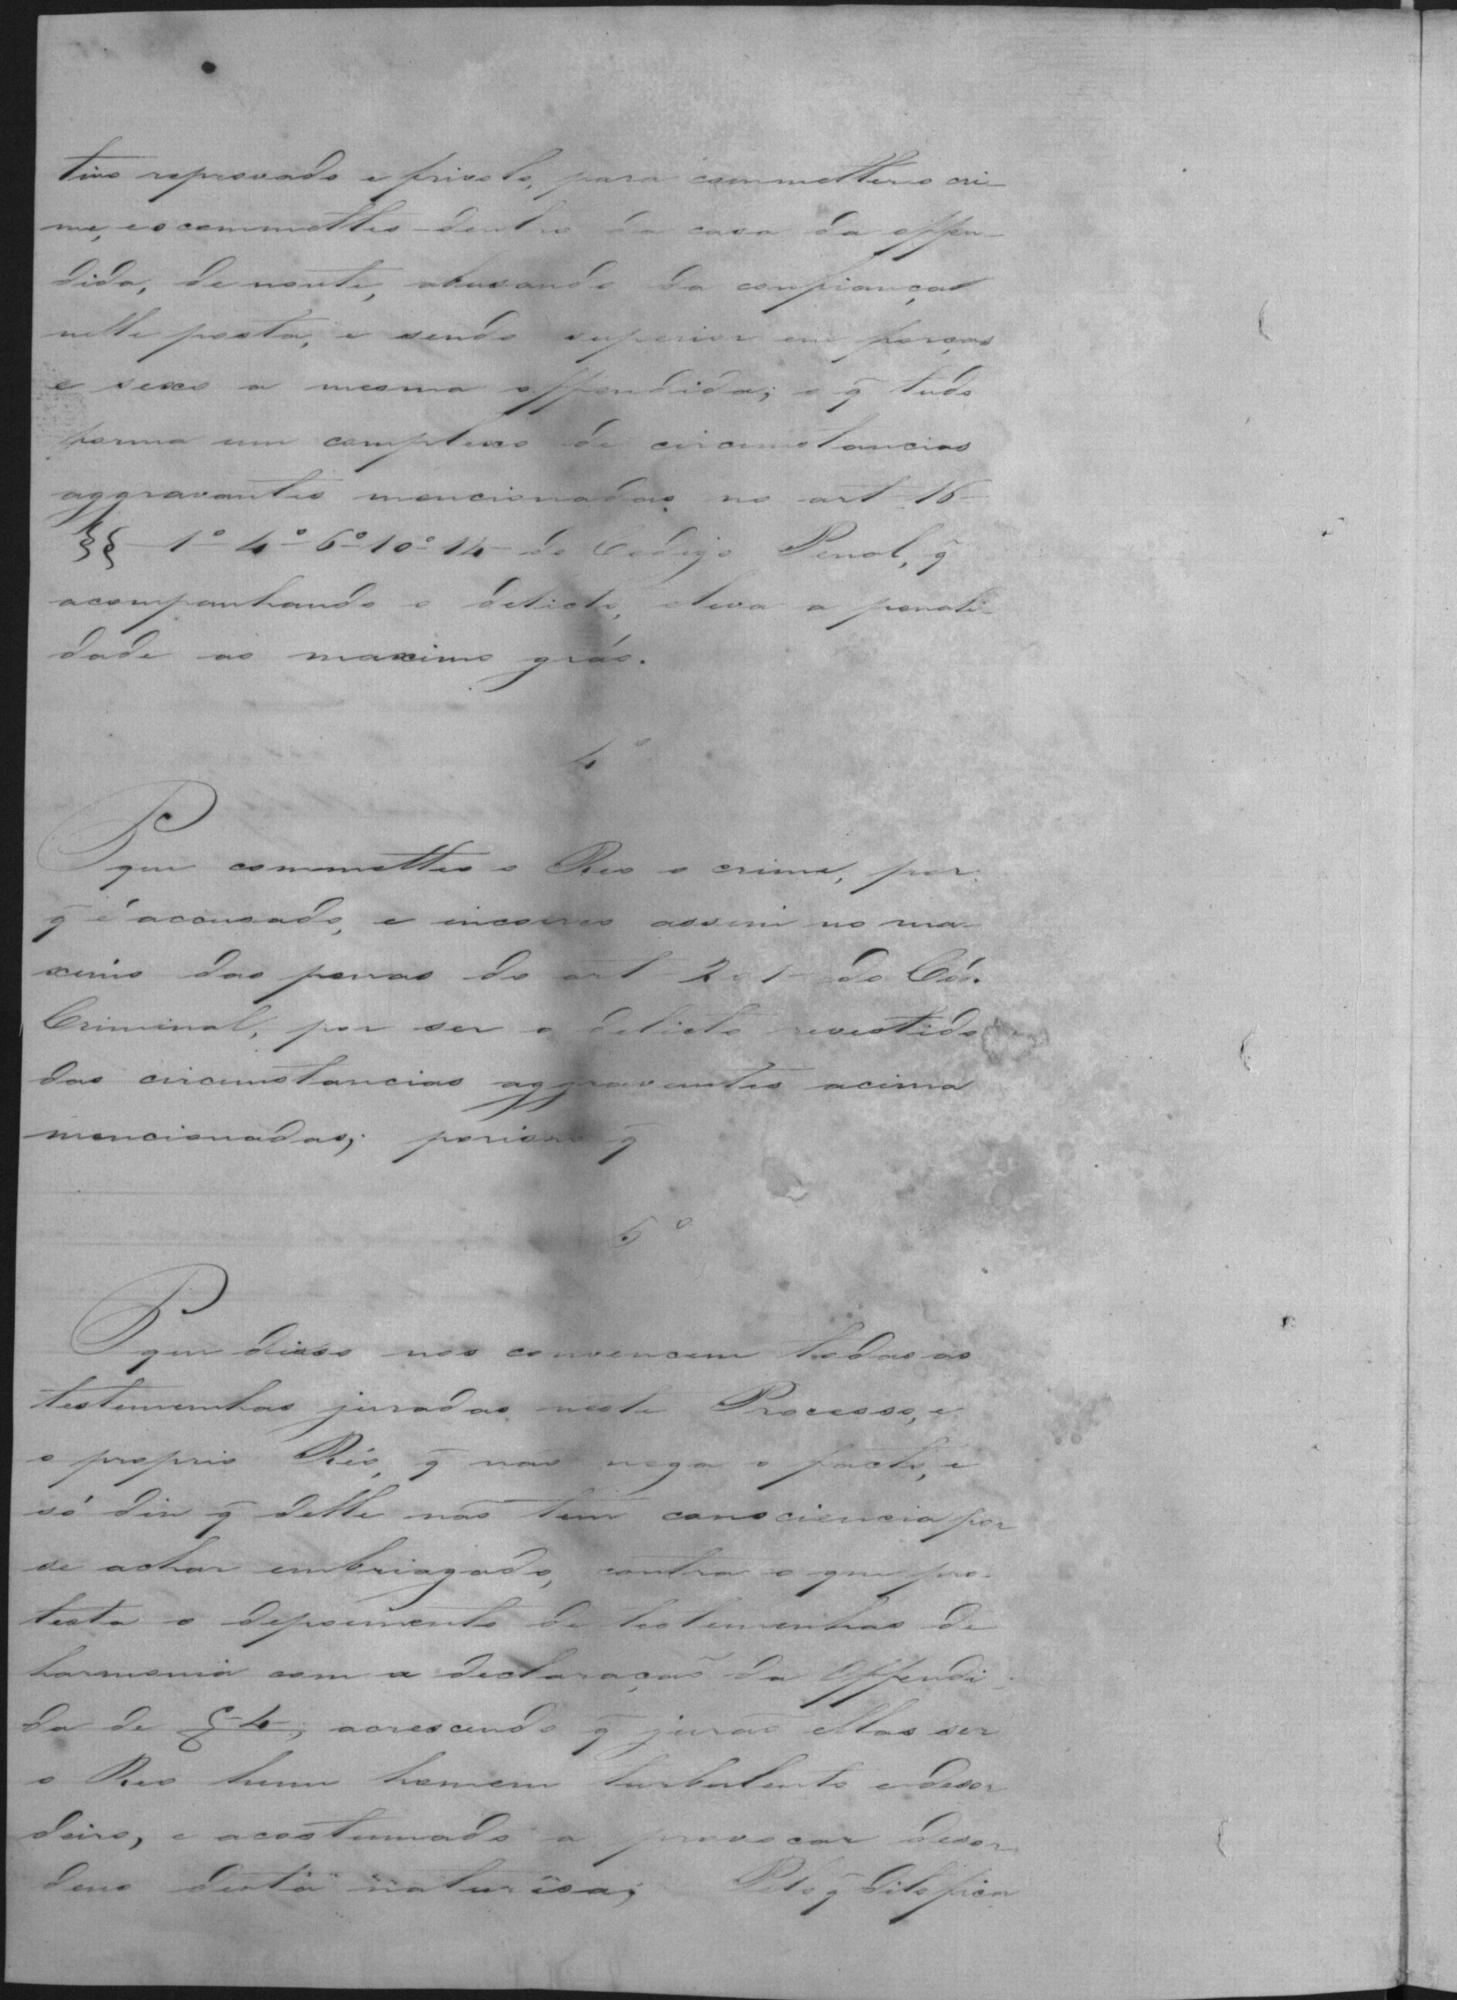 tivo reprovado e frivolo, para commetter o cri-
me, e o commetteo dentro da casa da offen-
dida, de noute, abusando da confiança
nelle posta, e sendo superior em forças
e sexo a mesma offendida; o q̃ tudo
forma um complexo de circumstancias
aggravantes mencionadas no art 16
§§ 1º 4º 6º 10º 14 do Codigo Penal, q̃
acompanhando o delicto, eleva a penali-
dade ao maximo gráo.
4º
P que commetteo o Reo o crime, por
q̃ é accusado, e incorreo assim no ma-
ximo das penas do art 201 do Cód.
Criminal, por ser o delicto revestido
das circumstancias aggravantes acima
mencionadas; porisso q̃
5º
P que disso nos convencem todas as
testemunhas juradas neste Processo, e
o proprio Réo, q̃ não nega o facto, e
só diz q̃ delle não tem consciencia por
se achar embriagado, contra o que pro-
testa o depoimento de testemunhas de
harmonia com a declaração da Offendi-
da de f 4, acrescendo q̃ jurão ellas ser
o Reo hum homem turbulento e desor
deiro, e acostumado a provocar desor-
dens desta naturesa; Pelo q̃ dito fica